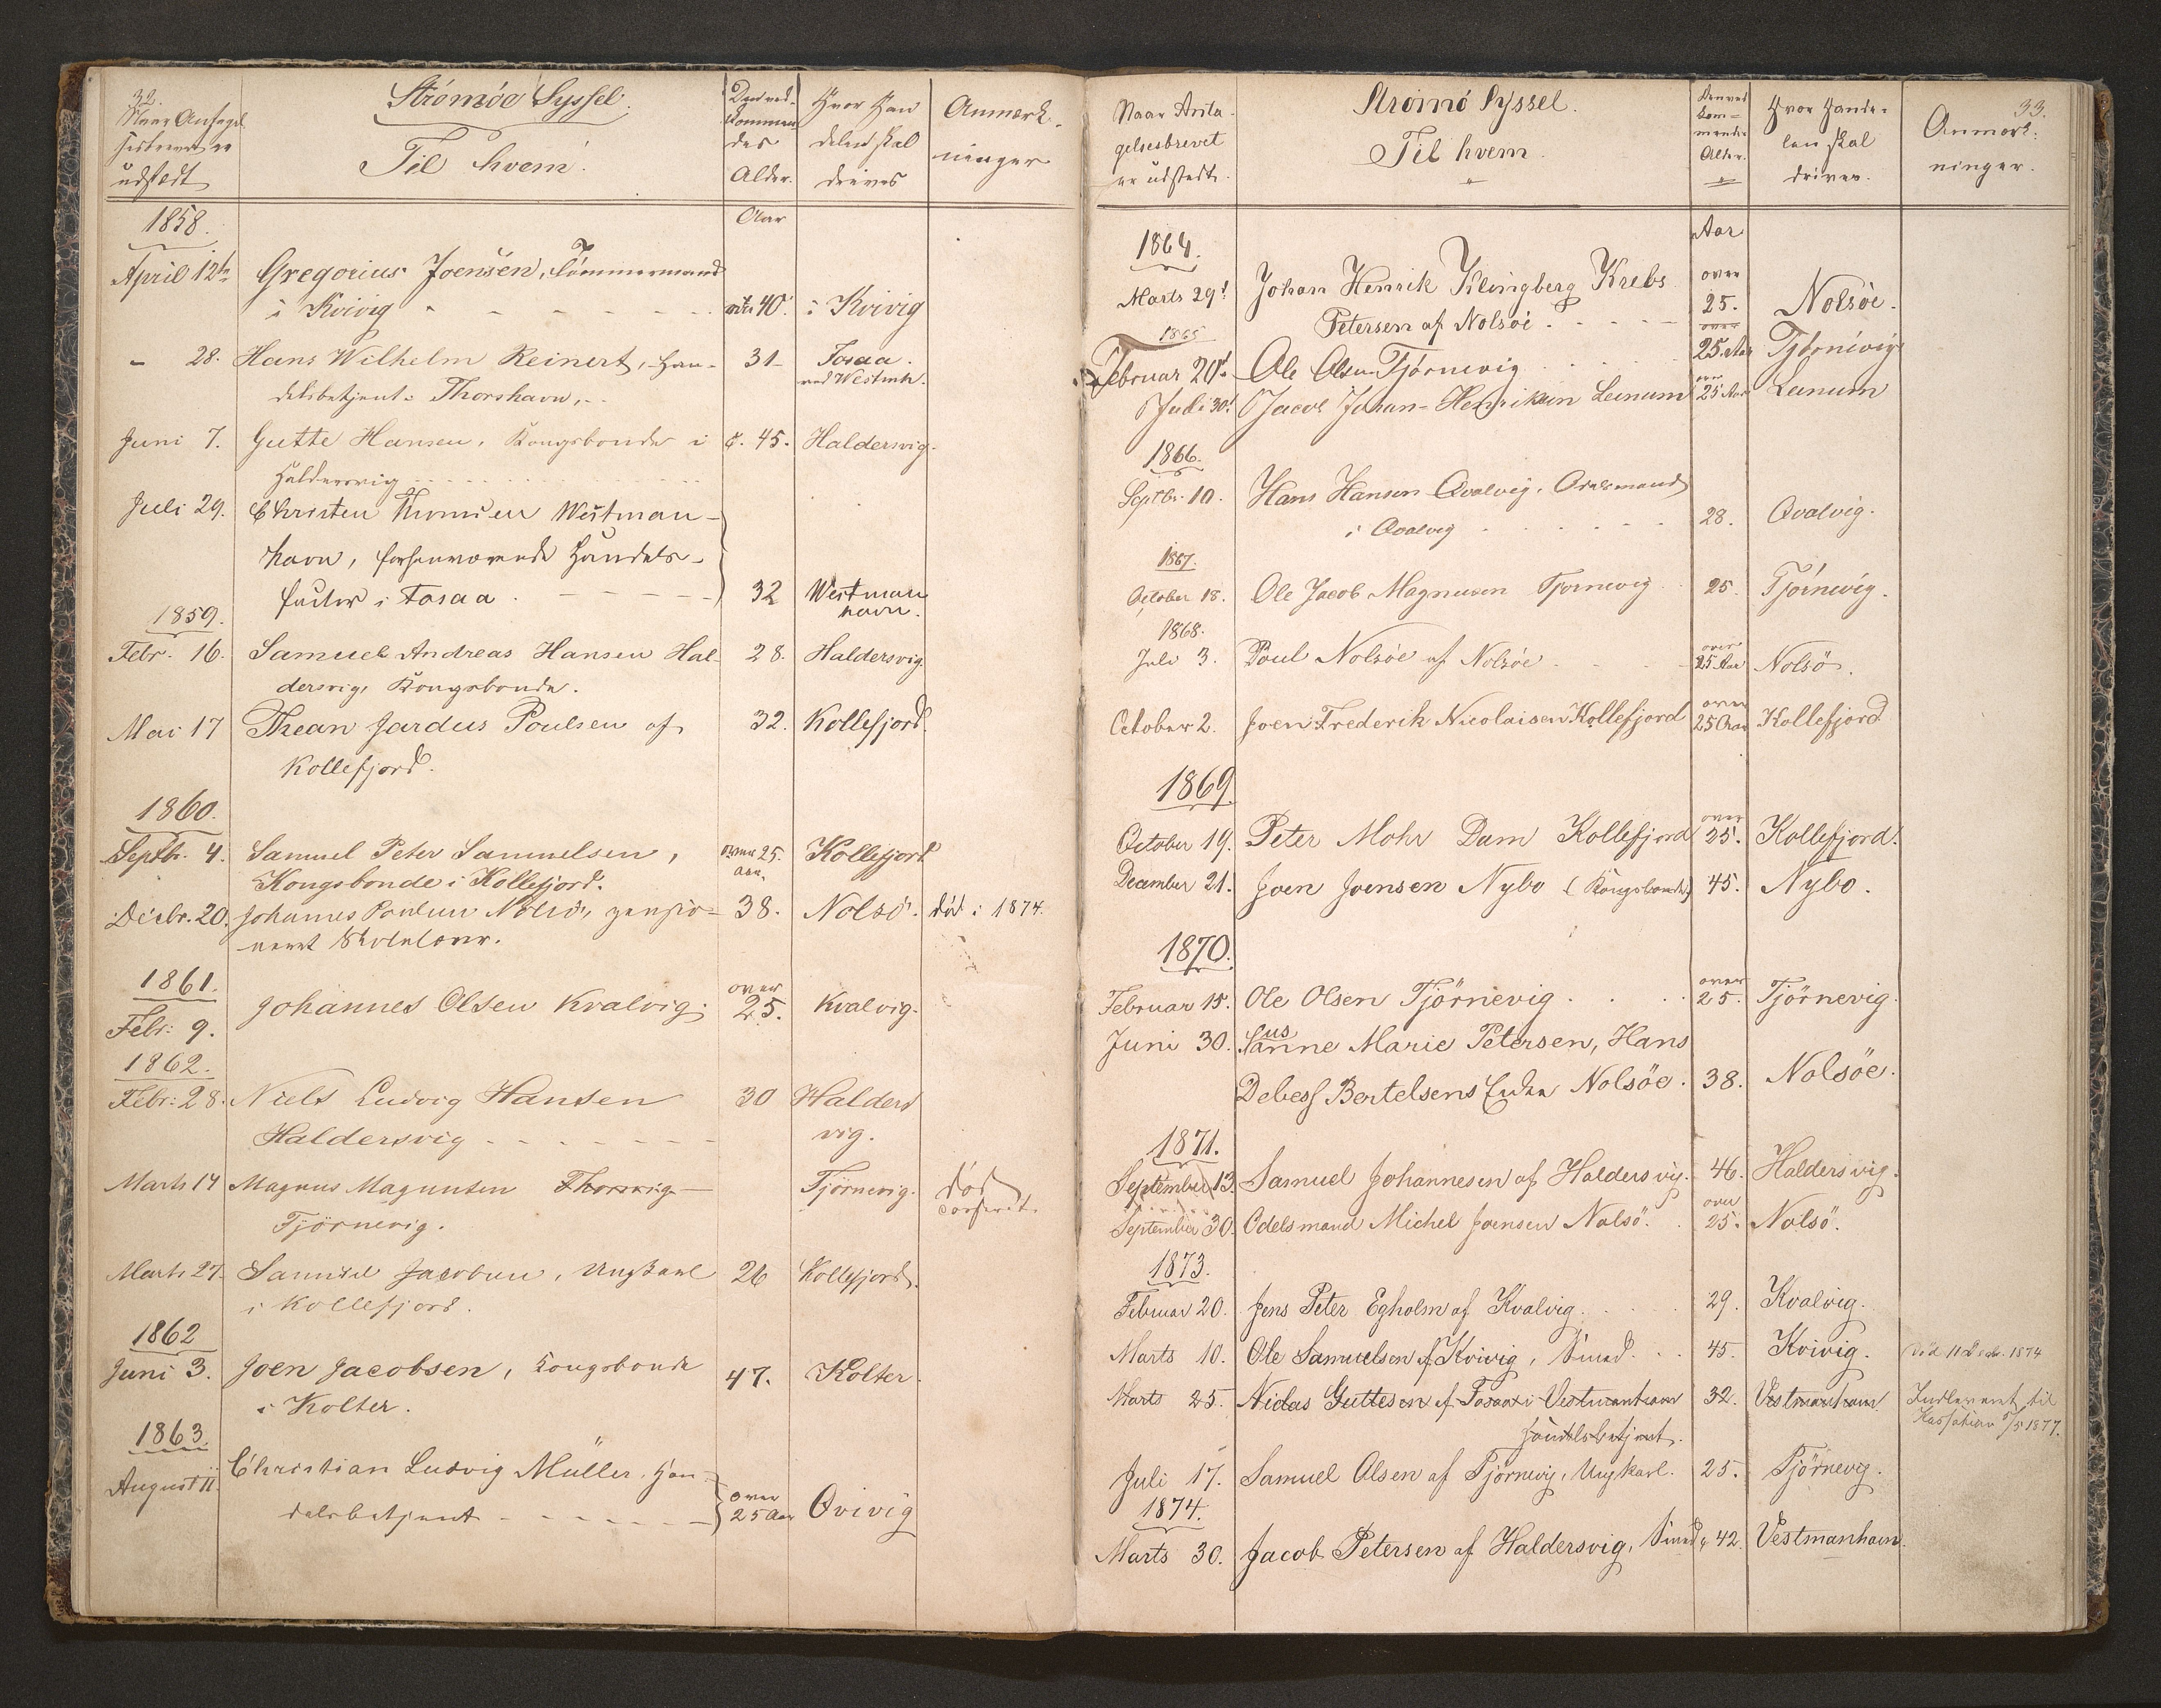 32.
Naar Antagel
sesbrevet er
udstedt
Strømöe Syssel.
Til hvem.
Den ved-
kommen
des
Alder.
Hvor Han
delen skal
drives
Anmærk-
ninger
1858.
Aar
April 12te Gregorius Joensen, Tømmermand
i Kvivig - - - - - - 40. i Kvivig
- 28. Hans Wilhelm Reinert, Han- 31 Fosaa.
ved Westmh.
delsbetjent i Thorshavn,
Juni 7. Gutte Hansen, Kongsbonde i c. 45. Haldersvig.
Haldersvig
Juli 29. Christen Thomsen Westman-
havn, forhenværende Handels-
factor i Fosaa. - - - - - 32 Westman
havn.
1859.
Febr. 16. Samuel Andreas Hansen Hal- 28. Haldersvig.
dersvig, Kongsbonde.
Mai 17 Thean Jardus Poulsen af 32. Kollefjord.
Kollefjord.
1860.
Septbr. 4. Samuel Peter Samuelsen, over 25. Kollefjord
Aar.
Kongsbonde i Kollefjord.
Decbr. 20. Johannes Poulsen Nolsö, pensio- 38. Nolsö. död i 1874.
neret Skolelærer.
1861.
Febr: 9. Johannes Olsen Kvalvig. over
25. Kvalvig.
1862.
Febr: 28. Niels Ludvig Hansen 30 Halders
Haldersvig - - - - - - - vig.
Marts 14 Magnus Magnussen Thorsvig Tjørnevig. död
Tjörnevig.
Marts 27. Samuel Jacobsen, Ungkarl 26 Kollefjord.
i Kollefjord.
1862
Juni 3. Joen Jacobsen, Kongsbonde 47. Kolter.
i Kolter.
1863.
August 11. Christian Ludvig Müller, Han-
delsbetjent - - - - - - over
25 Aar Qvivig
33.
Naar Anta-
gelsesbrevet
er udstedt.
Strömö Syssel.
Til hvem.
Denved
kom=
mendes
Alder.
Hvor Hande-
len skal
drives.
Anmærk:
ninger.
1864.
Aar
Marts 29d. Johan Henrik Klingberg Krebs over
Petersen af Nolsöe. - - - - 25. Nolsöe.
1865
Februar 20d. Ole Olsen Tjörnevig over
25. Aar Tjörnevig
Juli 30d. Jacob Johan-Henriksen Leinum over
25 Aar Leinum
1866.
Septbr. 10. Hans Hansen Qvalvig, Odelsmand
i Qvalvig - - - - - 28. Qvalvig.
1867.
October 18. Ole Jacob Magnusen Tjørnevig 25. Tjörnevig.
1868.
Juli 3. Poul Nolsöe af Nolsöe over
25 Aar Nolsö.
October 2. Joen Frederik Nicolaisen Kollefjord over
25 Aar Kollefjord
1869.
October 19. Peter Mohr Dam Kollefjord over
25. Kollefjord.
December 21. Joen Joensen Nybo (Kongsbonde) 45. Nybo.
1870.
Februar 15. Ole Olsen Tjörnevig over
25. Tjörnevig.
us
Juni 30. Sanne Marie Petersen, Hans
Debess Bertelsens Enke Nolsöe. 38. Nolsöe.
1871.
September 13. Samuel Johannesen af Haldersvig. 46. Haldersvig.
September 30. Odelsmand Michel Joensen Nolsö. over
25. Nolsö.
1873.
Februar 20. Jens Peter Egholm af Kvalvig. 29. Kvalvig.
Marts 10. Ole Samuelsen af Kvivig, Smed. 45. Kvivig. Död 11 Decbr. 1874
Marts 25. Nidas Guttesen af Fosaa i Vestmanhavn 32. Vestmanhavn. Indleveret til
Handelsbetjent. Kassation 1877.
Juli 17. Samuel Olsen af Tjörnevig, Ungkarl. 25. Tjörnevig.
1874.
Marts 30. Jacob Petersen af Haldersvig, Smed, 42. Vestmanhavn.